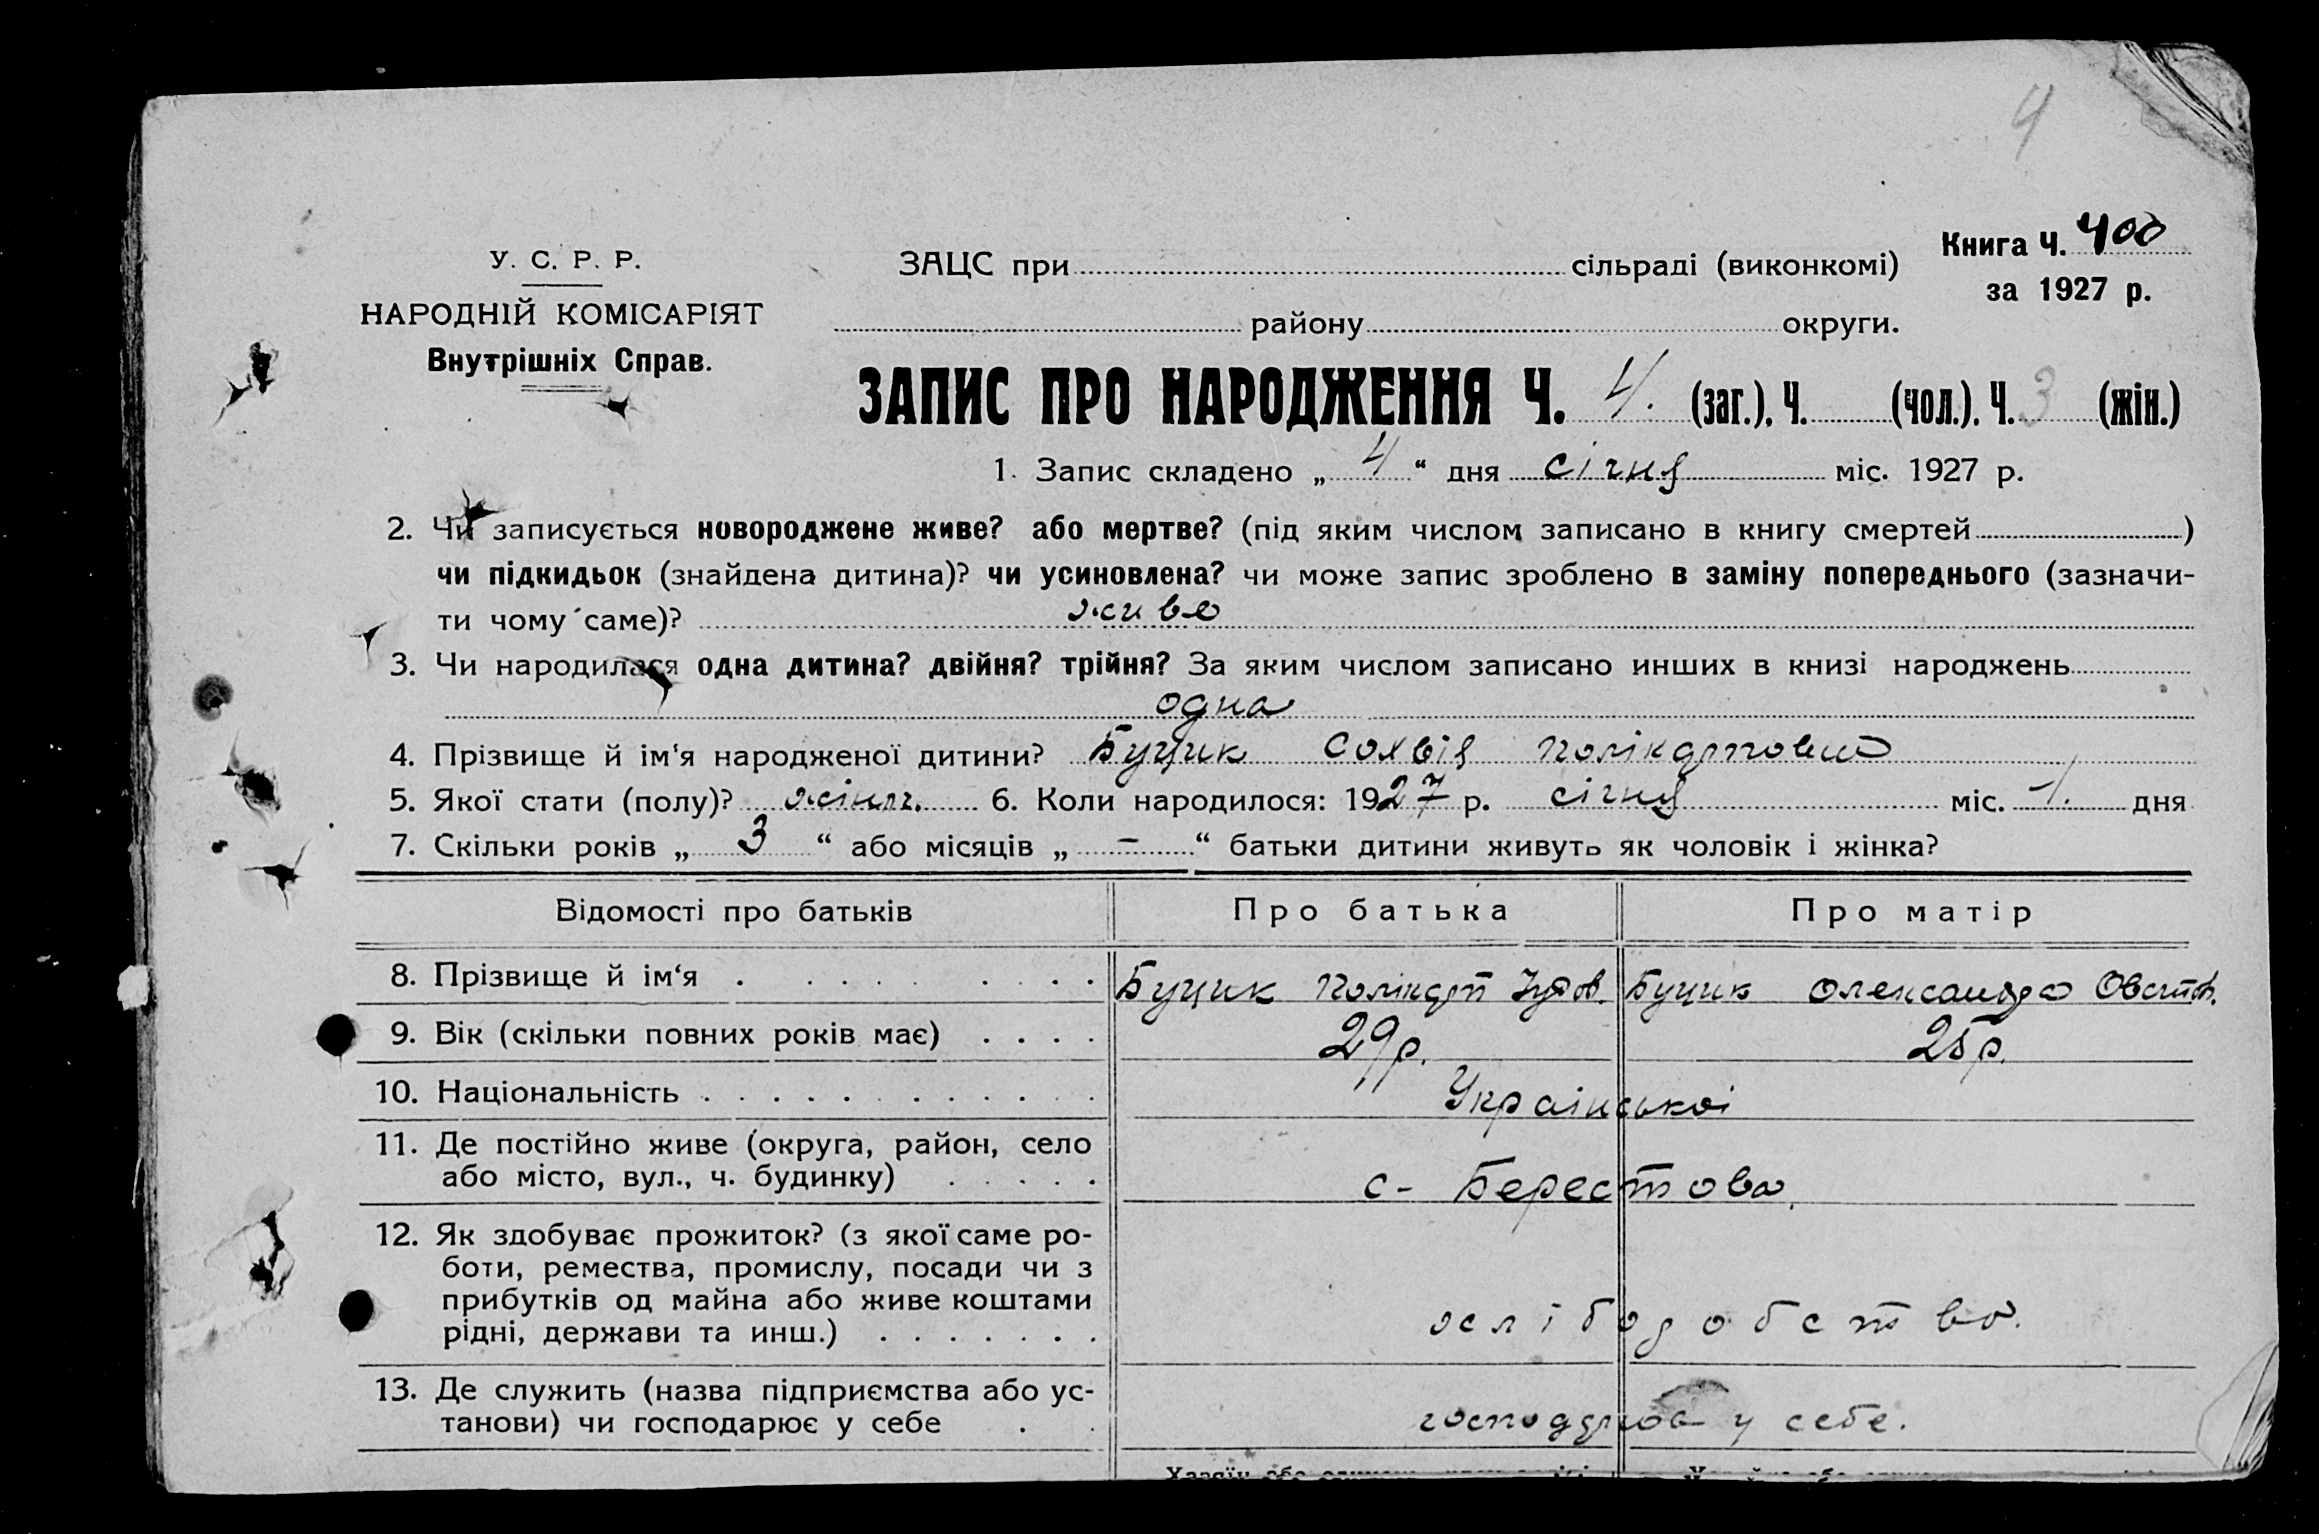 4
У. С. Р. Р.
НАРОДНІЙ КОМІСАРІЯТ
Внутрішніх Справ.
ЗАЦС при сільраді (виконкомі)
Книга Ч. 400
за 1927 р.
району округи.
ЗАПИС ПРО НАРОДЖЕННЯ Ч. 4. (заг.), Ч. (чол.), Ч. 3 (жін.)
1. Запис складено „ 4 “ дня січня міс. 1927 р.
2. Чи записується новороджене живе? або мертве? (під яким числом записано в книгу смертей )
чи підкидьок (знайдена дитина)? чи усиновлена? чи може запис зроблено в заміну попереднього (зазначи-
ти чому саме)? живе
3. Чи народилася одна дитина? двійня? трійня? За яким числом записано инших в книзі народжень
одна
4. Прізвище й ім‘я народженої дитини? Буцик Полікарповна
5. Якої стати (полу)? жіноч. 6. Коли народилося: 1927 р. січня міс. 1. дня
7. Скільки років „ 3 “ або місяців „ – “ батьки дитини живуть як чоловік і жінка?
Відомості про батьків Про батька Про матір
8. Прізвище й ім‘я Буцик Полікарп Буцик Олександра
9. Вік (скільки повних років має) 29 р. 25 р.
10. Національність Української
11. Де постійно живе (округа, район, село
або місто, вул., ч. будинку) с- Берестова,
12. Як здобуває прожиток? (з якої саме ро-
боти, ремества, промислу, посади чи з
прибутків од майна або живе коштами
рідні, держави та инш.)
13. Де служить (назва підприємства або ус-
танови) чи господарює у себе у себе.